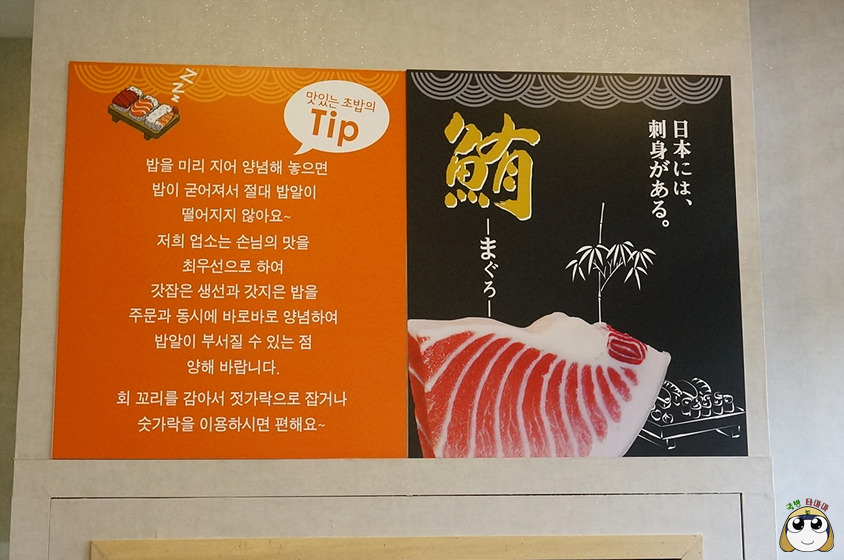 맛있는 초밥의
Tip
밥을 미리 지어 양념해 놓으면
밥이 굳어져서 절대 밥알이
떨어지지 않아요~
저희 업소는 손님의 맛을
최우선으로 하여
갓잡은 생선과 갓지은 밥을
주문과 동시에 바로바로 양념하여
밥알이 부서질 수 있는 점
양해 바랍니다.
회 꼬리를 감아서 젓가락으로 잡거나
숫가락을 이용하시면 편해요~
日本には、
刺身がある。
鮪
―まぐろ―